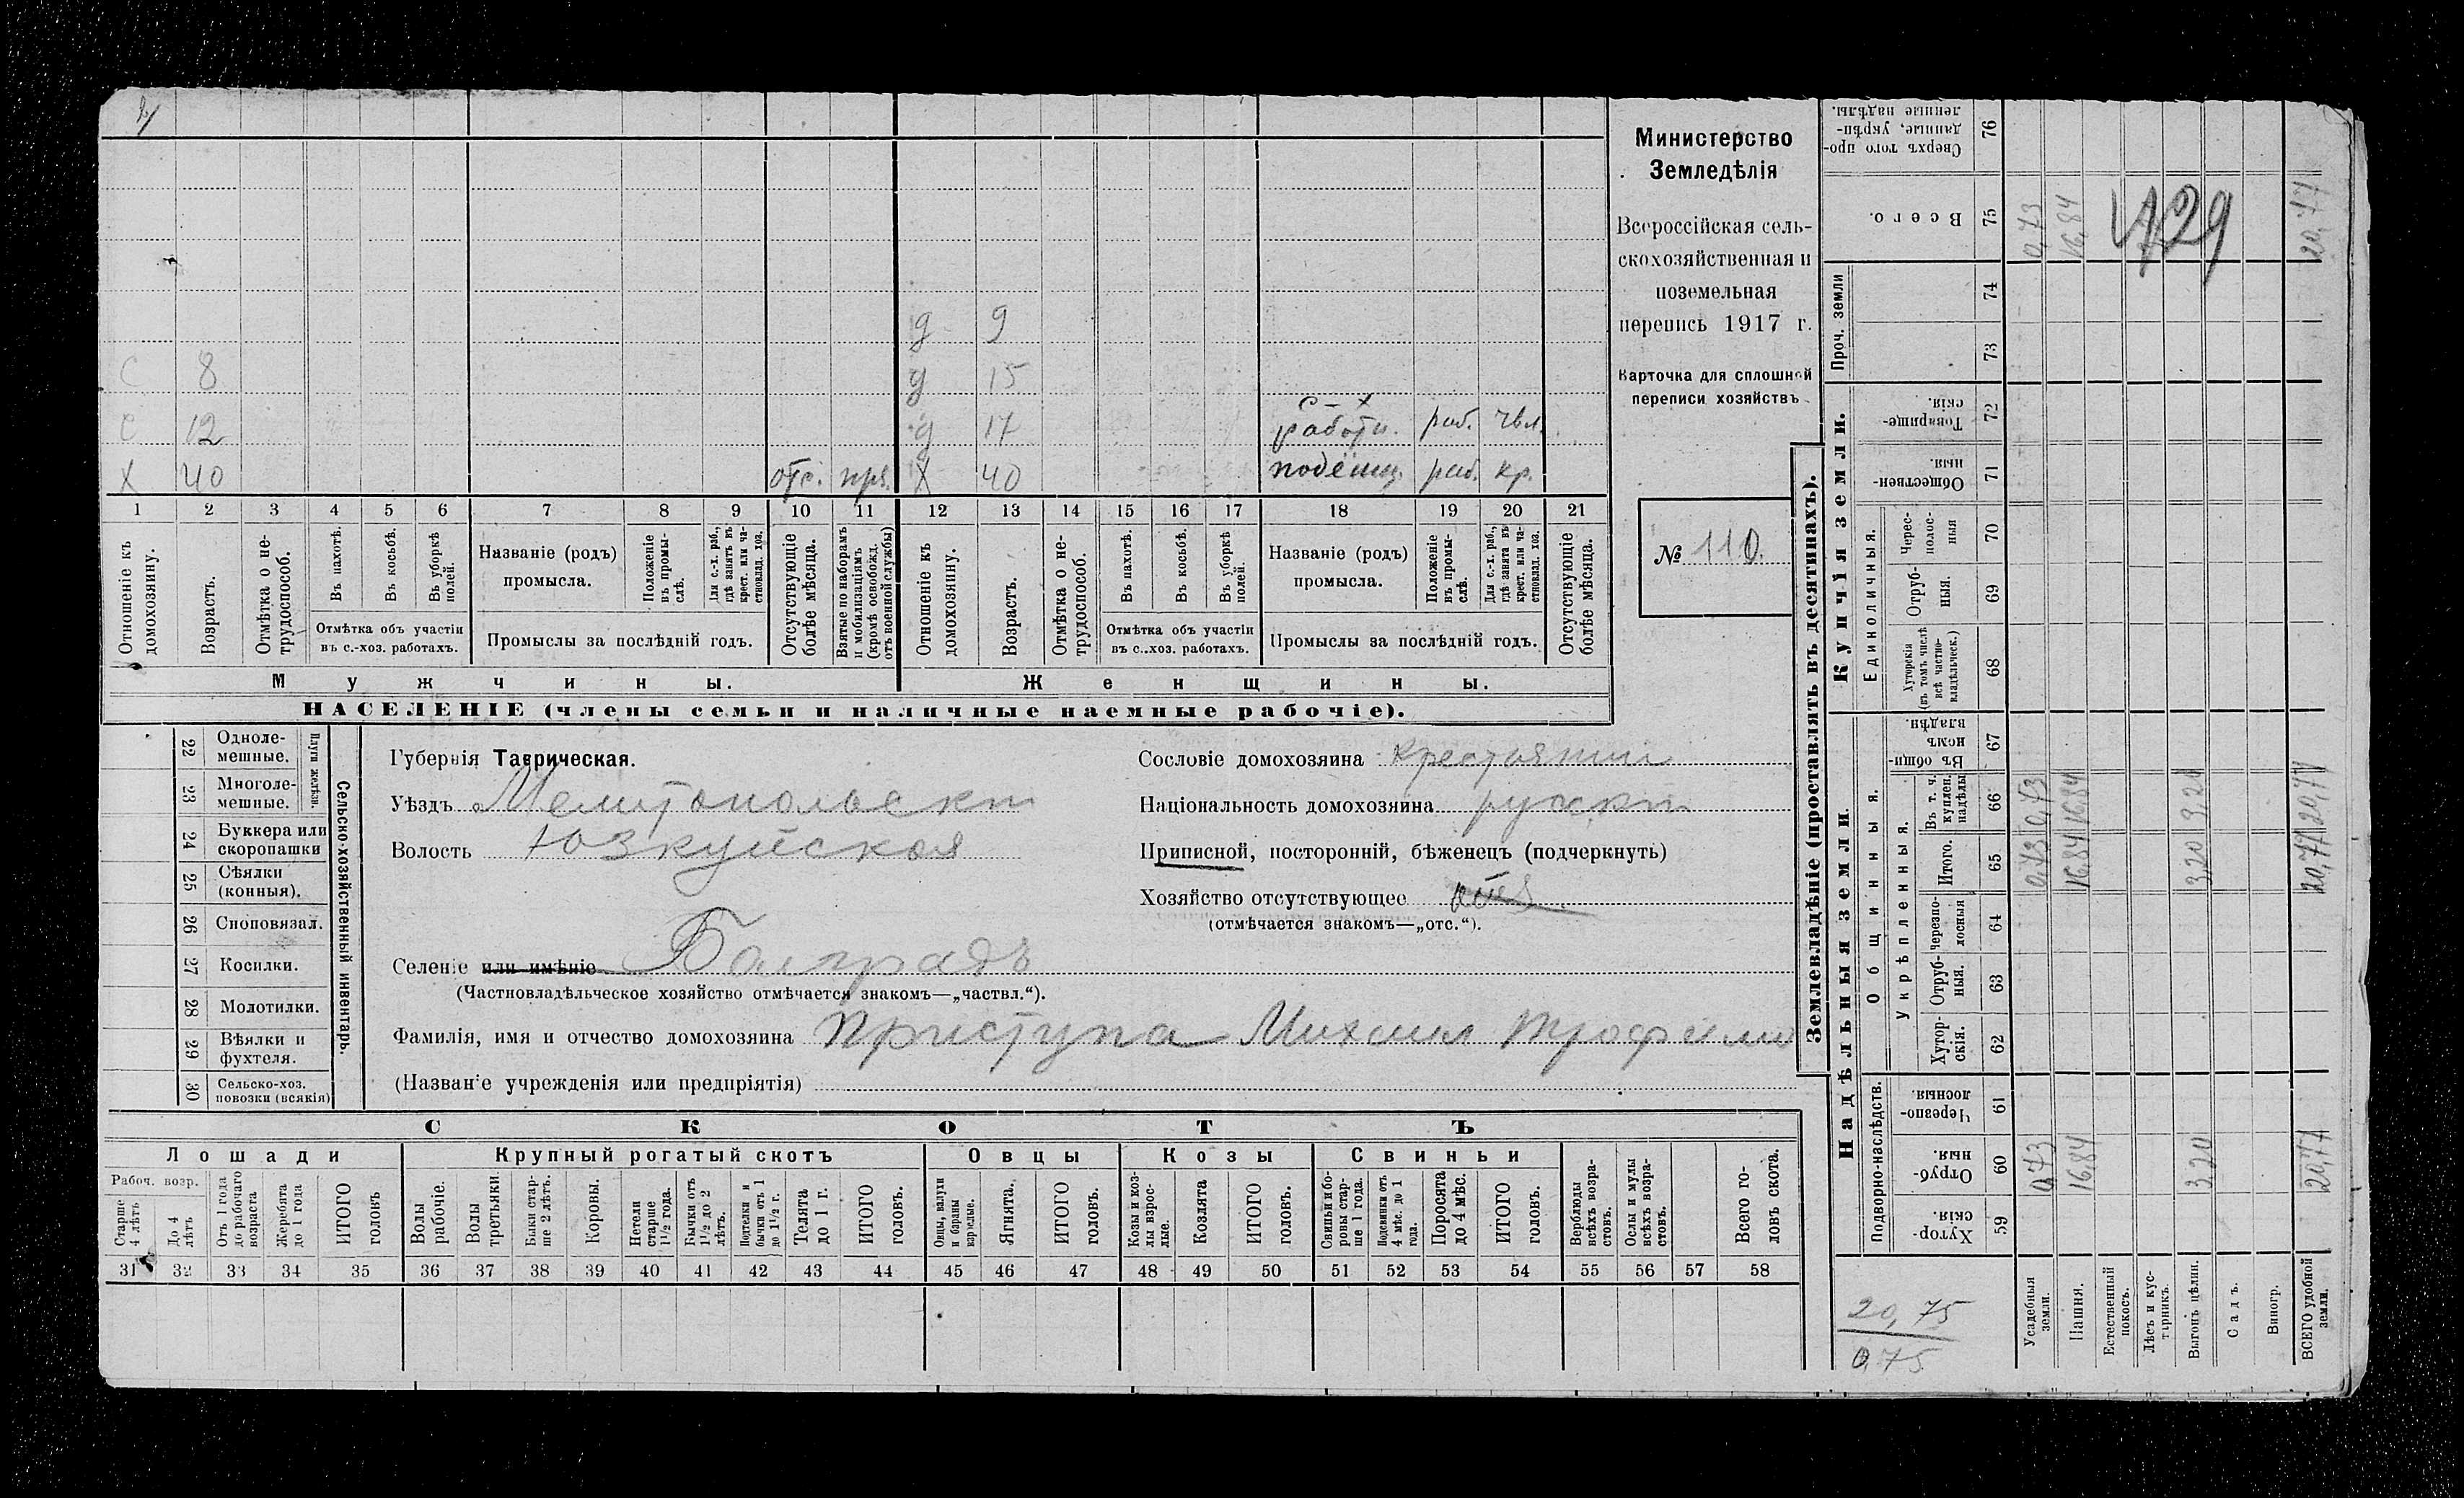 С 8
С 12
Х 40 отс.
д 9
д 15
д 17 раб.
Х 40 раб. кр.
1 2 3 4 5 6 7 8 9 10 11 12 13 14 15 16 17 18 19 20 21
Отношеніе къ домохозяину.
Возрастъ.
Отмѣтка о не-трудоспособ.
Въ пахотѣ.
Въ косьбѣ.
Въ уборкѣ полей.
Отмѣтка объ участіи
въ с.-хоз. работахъ.
Названіе (родъ)
промысла.
Положеніе въ промы-слѣ.
Для с.-х. раб., гдѣ занятъ въ крест. или ча-стновлад. хоз.
Промыслы за послѣдній годъ.
Отсутствующіе болѣе мѣсяца.
Взятые по наборамъ и мобилизаціямъ (кромѣ освобожд. отъ военной службы)
Отношеніе къ домохозяину.
Возрастъ.
Отмѣтка о не-трудоспособ.
Въ пахотѣ.
Въ косьбѣ.
Въ уборкѣ полей.
Отмѣтка объ участіи
въ с..хоз. работахъ.
Названіе (родъ)
промысла.
Положеніе въ промы-слѣ.
Для с.-х. раб., гдѣ занята въ крест. или ча-стновлад. хоз.
Промыслы за послѣдній годъ.
Отсутствующіе болѣе мѣсяца.
Мужчины.
Женщины.
НАСЕЛЕНІЕ (члены семьи и наличные наемные рабочіе).
Министерство
Земледѣлія
Всероссійская сель-
скохозяйственная и
поземельная
перепись 1917 г.
Карточка для сплошной
переписи хозяйствъ
№ 110.
22 Одноле-
мешные.
23 Многоле-
мешные.
Плуги желѣзн.
24 Буккера или
скоропашки
25 Сѣялки
(конныя).
26 Сноповязал.
27 Косилки.
28 Молотилки.
29 Вѣялки и
фухтеля.
30 Сельско-хоз.
повозки (всякія)
Сельско-хозяйственный инвентарь.
Губернія Таврическая.
Уѣздъ Мелитопольскій
Волость Юзкуйская
Селеніе или имѣніе Болградъ
(Частновладѣльческое хозяйство отмѣчается знакомъ—„частвл.“).
Фамилія, имя и отчество домохозяина Приступа Михаил Трофимо
(Названіе учрежденія или предпріятія)
Сословіе домохозяина крестьянин
Національность домохозяина русскій
Приписной, посторонній, бѣженецъ (подчеркнуть)
Хозяйство отсутствующее
(отмѣчается знакомъ—„отс.“).
СКОТЪ
Лошади
Рабоч. возр.
Старше 4 лѣтъ
До 4 лѣтъ
Отъ 1 года до рабочаго возраста
Жеребята до 1 года
ИТОГО головъ
Крупный рогатый скотъ
Волы рабочіе.
Волы третьяки.
Быки стар-ше 2 лѣтъ.
Коровы.
Нетели старше 1½ года.
Бычки отъ 1½ до 2 лѣтъ.
Подтелки и бычки отъ 1 до 1½ г.
Телята до 1 г.
ИТОГО головъ.
Овцы
Овцы, валухи и бараны взрослые.
Ягнята.
ИТОГО головъ.
Козы
Козы и коз-лы взрос-лые.
Козлята
ИТОГО головъ.
Свиньи
Свиньи и бо-ровы стар-ше 1 года.
Подсвинки отъ 4 мѣс. до 1 года.
Поросята до 4 мѣс.
ИТОГО головъ.
Верблюды всѣхъ возра-стовъ.
Ослы и мулы всѣхъ возра-стовъ.
Всего го-ловъ скота.
31 32 33 34 35 36 37 38 39 40 41 42 43 44 45 46 47 48 49 50 51 52 53 54 55 56 57 58
Землевладѣніе (проставлять въ десятинахъ).
Надѣльныя земли.
Купчія земли.
Проч. земли
Подворно-наслѣдств.
Общинныя.
Укрѣпленныя.
Единоличныя.
Хутор-скія. 59
Отруб-ныя. 60
Черезпо-лосныя 61
Хутор-скія. 62
Отруб-ныя. 63
Черезпо-лосныя 64
Итого. 65
Въ т. ч. куплен. надѣлы 66
Въ общин-номъ владѣн. 67
Хуторскія (въ томъ числѣ всѣ частно-владѣльческ.) 68
Отруб-ныя. 69
Черес-полос-ныя 70
Обществен-ныя. 71
Товарище-скія. 72
73
74
Всего. 75
Сверхъ того про-данные, укрѣп-ленные надѣлы. 76
Усадебныя земли. 0,73 0,73 0,73 0,73
Пашня. 16,84 16,84 16,84 16,84
Естественный покосъ.
Лѣсъ и кус-тарникъ.
Выгонъ цѣлин. 3,20 3,20 3,20
Садъ.
Виногр.
ВСЕГО удобной земли. 20,77 20,77 20,77 20,77
429
20,75
0,75